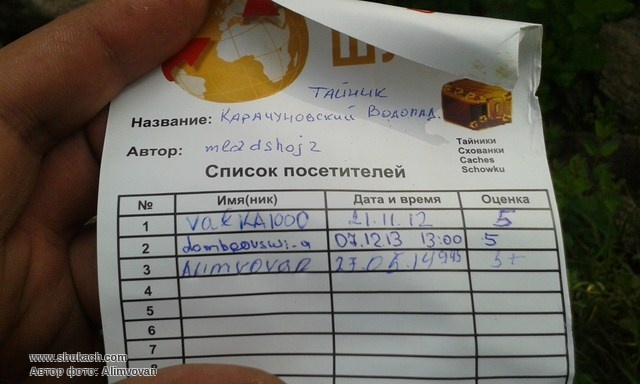 ШУ
ТАЙНИК
Название: КАРАЧУНОВСКИЙ ВОДОПАД.
Автор: mladshoj2
Тайники
Схованки
Caches
Schowku
Список посетителей
№ Имя(ник) Дата и время Оценка
1 VaKKA1000 21.11.12 5
2 07.12.13 13:00 5
3 Alimvovan 27.05.14 9:45 5+
4
5
6
7
www.shukach.com
Автор фото: Alimvovan